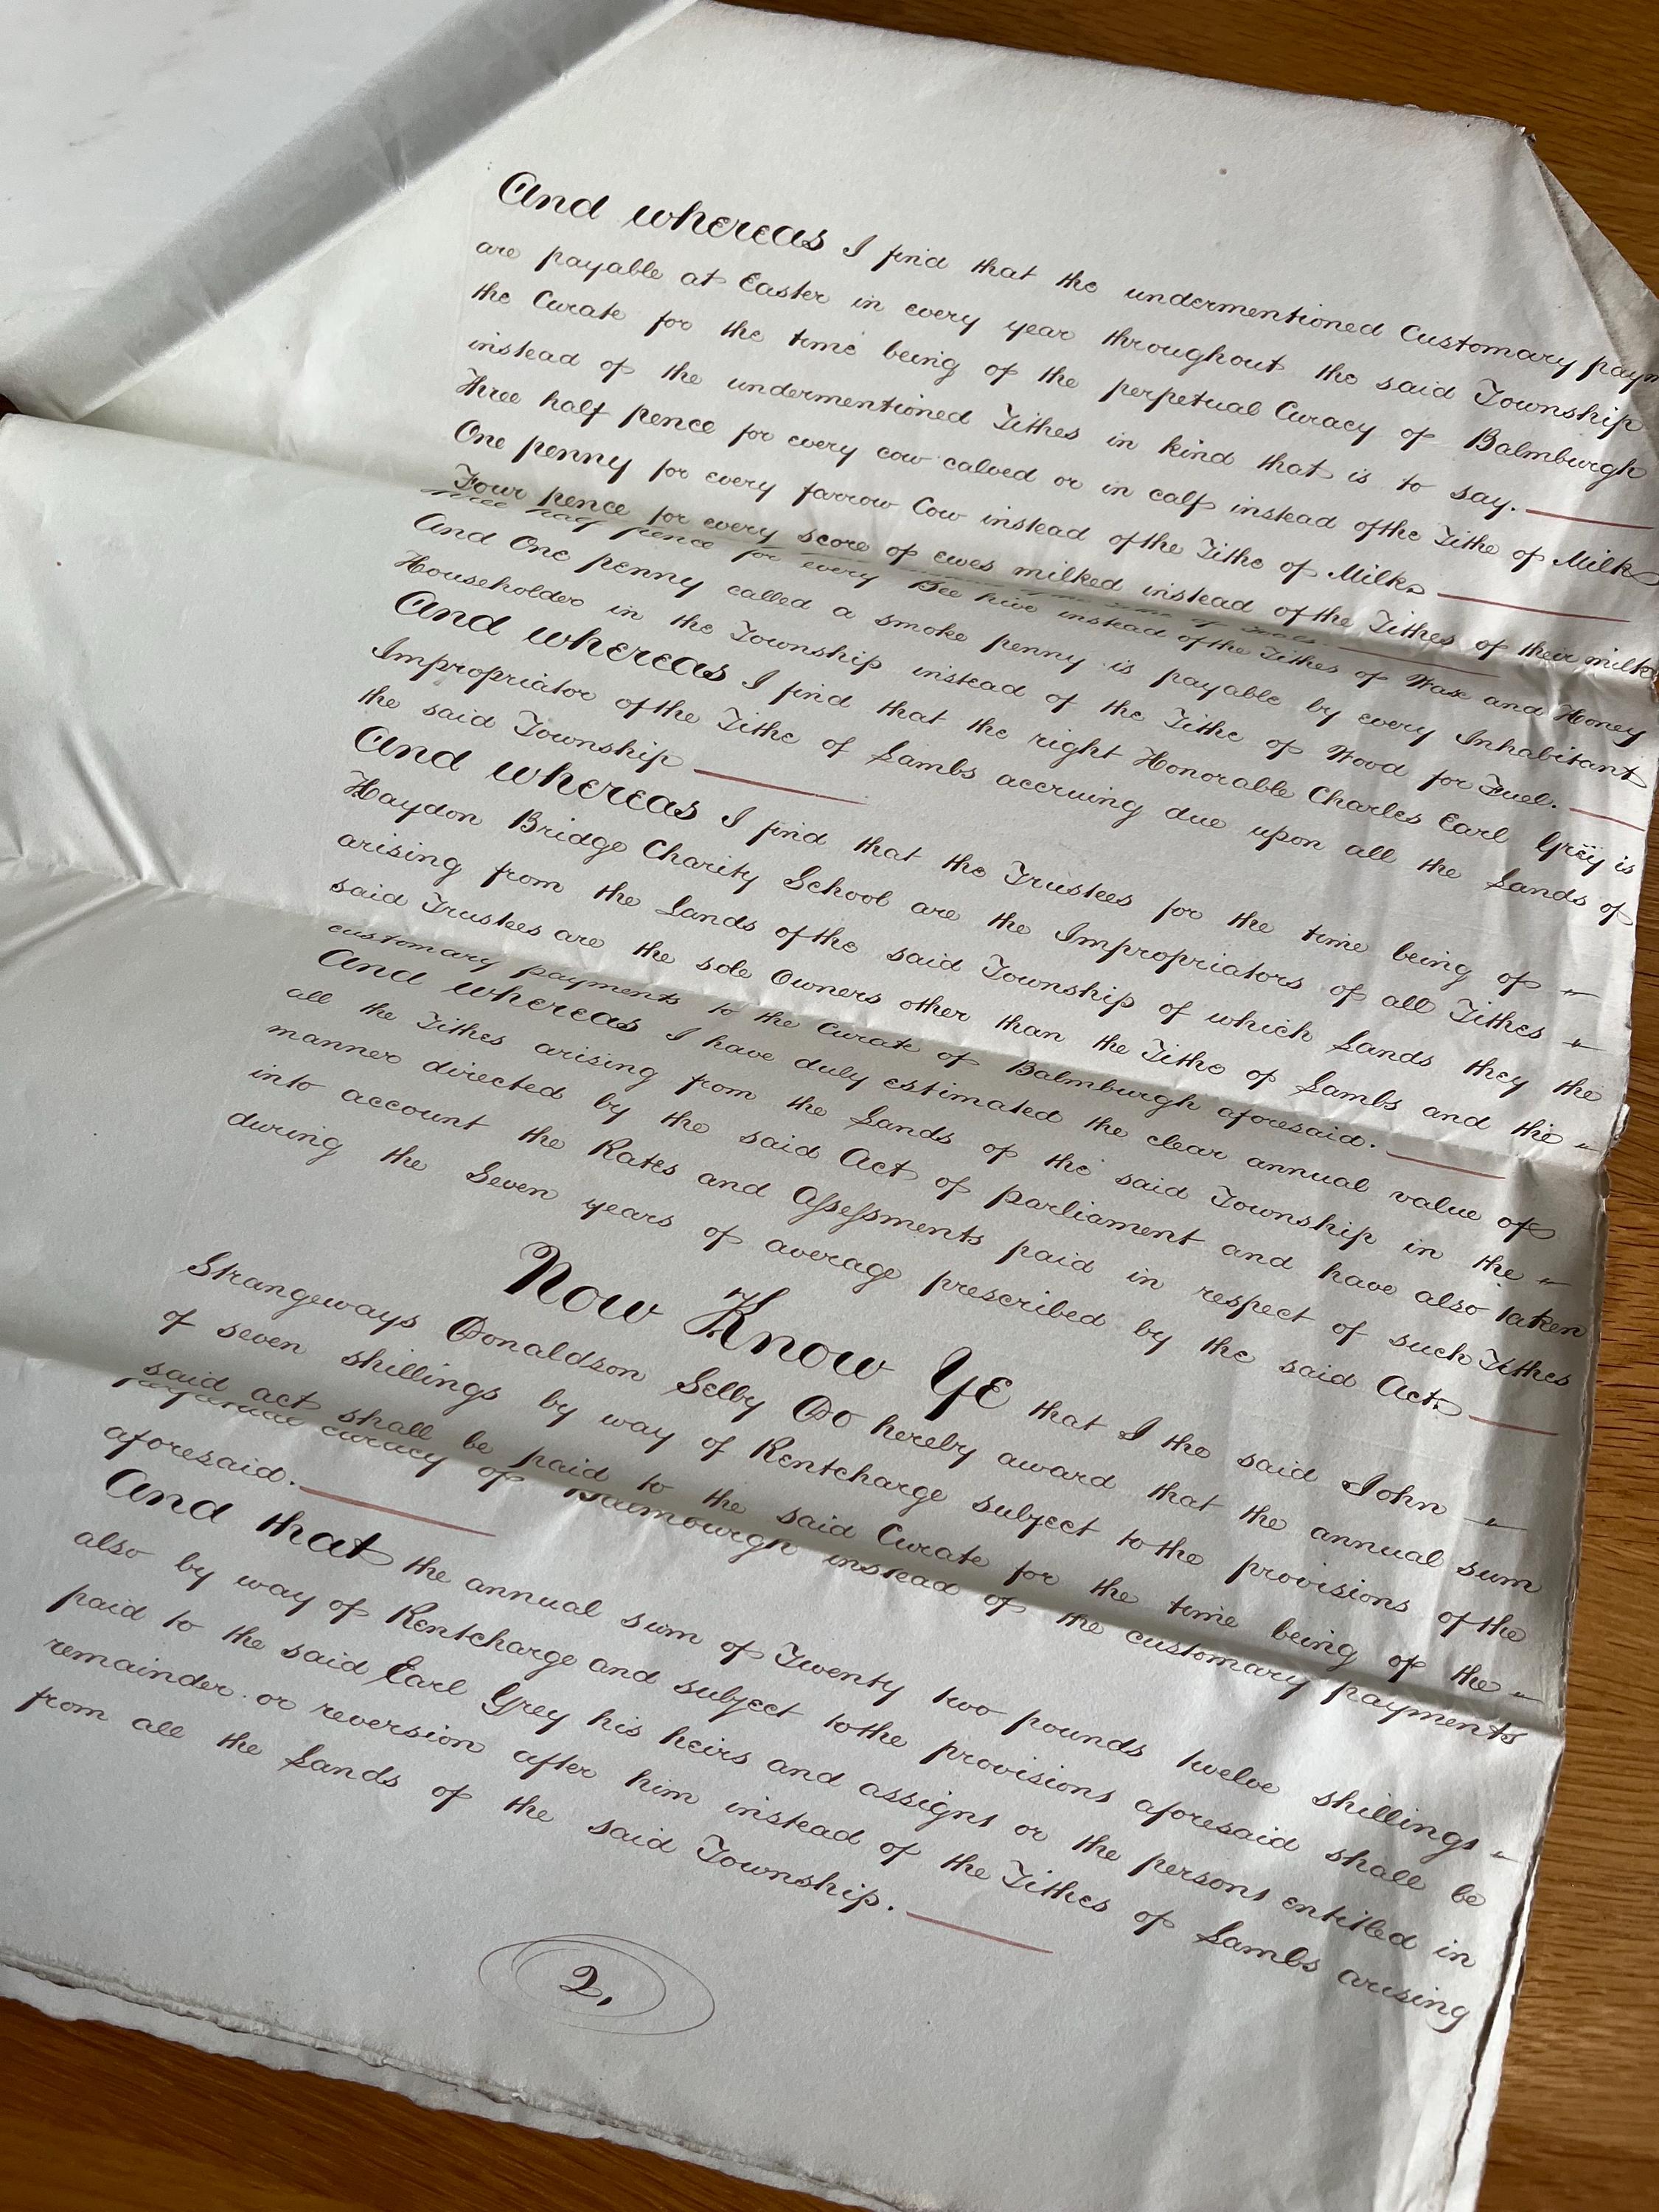 And whereas I find that the undermentioned Customary paym
are payable at Easter in every year throughout the said Township
the Curate for the time being of the perpetual Curacy of Balmburgh
instead of the undermentioned Tithes in kind that is to say.
Three half pence for every cow calved or in calf instead of the Tithe of Milk
One penny for every farrow Cow instead of the Tithe of Milk
Four pence for every score of ewes milked instead of the Tithes of their milk
half pence for every Bee hive instead of the Tithes of Wax and Honey
And One penny called a smoke penny is payable by every Inhabitant
Householder in the Township instead of the Tithe of Wood for Fuel.
And whereas I find that the right Honorable Charles Earl Grey is
Impropriator of the Tithe of Lambs accruing due upon all the Lands of
the said Township
And whereas I find that the Trustees for the time being of "
Haydon Bridge Charity School are the Impropriators of all Tithes "
arising from the Lands of the said Township of which Lands they the
said Trustees are the sole Owners other than the Tithe of Lambs and the "
customary payments to the Curate of Balmburgh aforesaid.
And whereas I have duly estimated the clear annual value of
all the Tithes arising from the Lands of the said Township in the "
manner directed by the said Act of parliament and have also taken
into account the Rates and Assessments paid in respect of such Tithes
during the Seven years of average prescribed by the said Act.
Now Know Ye that I the said John "
Strangeways Donaldson Selby Do hereby award that the annual sum
of seven shillings by way of Rentcharge subject to the provisions of the
said act shall be paid to the said Curate for the time being of the "
perpetual curacy of Balmburgh instead of the customary payments
aforesaid.
And that the annual sum of Twenty two pounds twelve shillings "
also by way of Rentcharge and subject to the provisions aforesaid shall be
paid to the said Earl Grey his heirs and assigns or the persons entitled in
remainder or reversion after him instead of the Tithes of Lambs arising
from all the Lands of the said Township.
2.